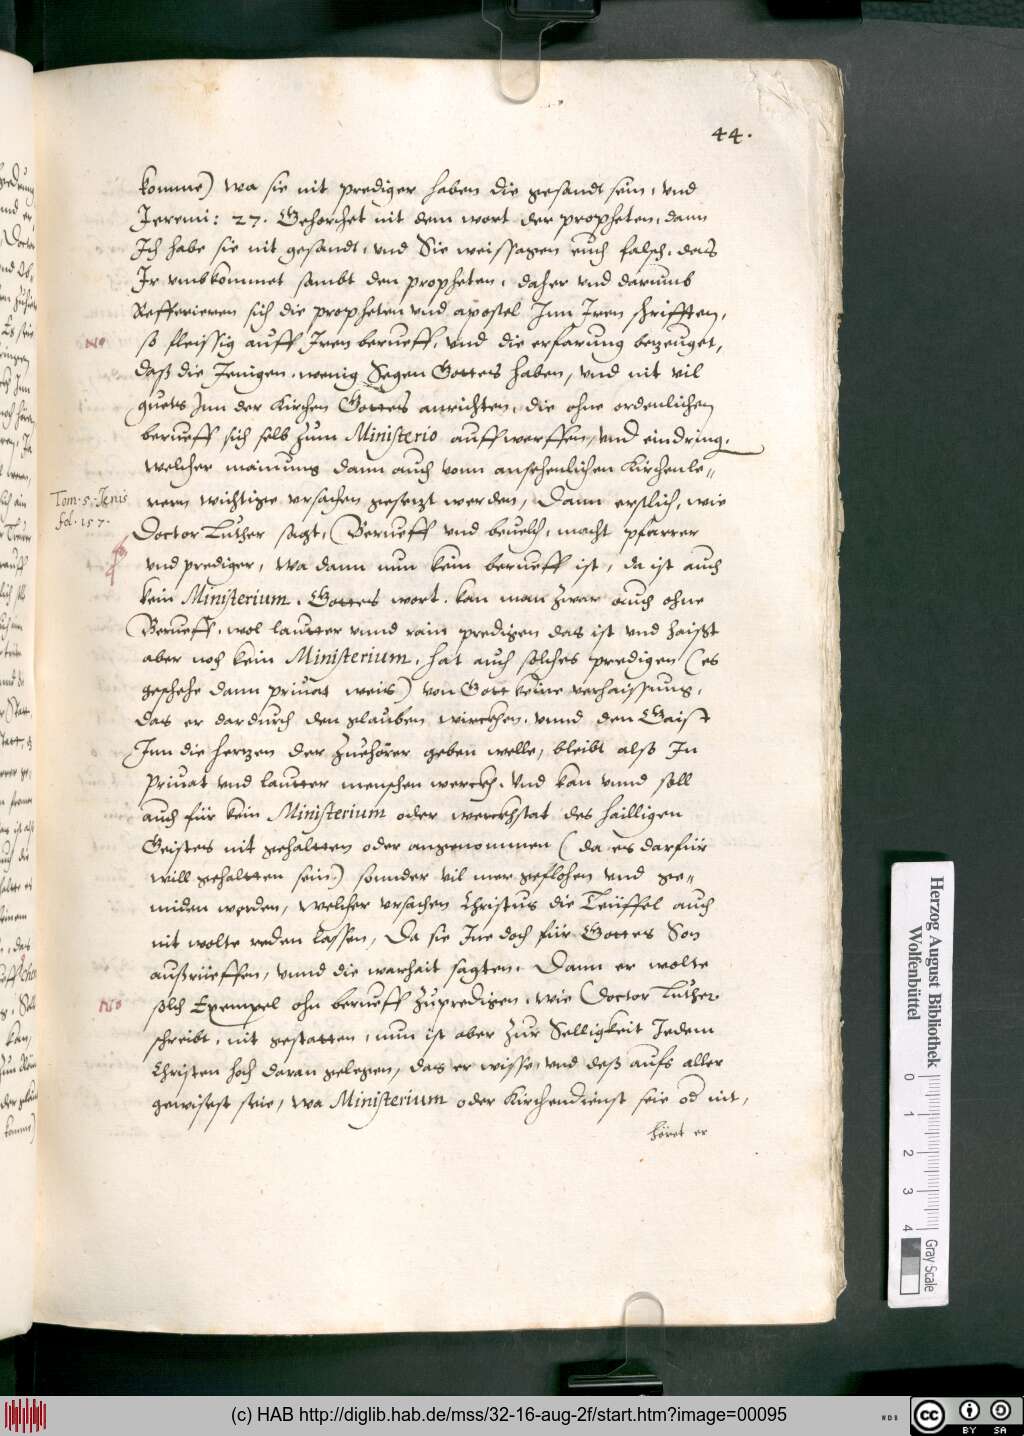 44.
komme) wa sie nit prediger haben die gesandt sein, vnd
Jeremi: 27. Gehorchet nit dem wort der propheten, dann
Ich habe sie nit gesandt, vnd Sie weissagen euch falsch, das
Ir vmbkommet sambt den propheten, daher vnd darumb
Refferieren sich die propheten vnd apostel Inn Iren schrifften,
so fleissig auff Iren berueff, vnd die erfarung bezeuget,
No
daß die Jenigen wenig Segen Gottes haben, vnd nit vil
guets Inn der Kirchen Gottes anrichten, die ohne ordenlichen
berueff sich selb zum Ministerio auffwerffen, vnd eindring.
welcher mainung dann auch vonn ansehenlichen Kirchenle=
Tom. 5. Jenis
fol. 157.
rern wichtige vrsachen gesetzt werden, Dann erstlich, wie
Doctor Luther sagt, Berueff vnd beuelch, macht pfarrer
vnd prediger, wa dann nun kein berueff ist, da ist auch
kein Ministerium, Gottes wort kan man zwar auch ohne
Berueff, wol lautter vnnd rain predigen das ist vnd haißt
aber noch kein Ministerium, hat auch solches predigen (es
geschehe dann priuat weis) von Gott keine verhaissung,
das er dardurch den glauben wircken, vnnd den Gaist
Inn die hertzen der Zuehörer geben welle, bleibt alß In
Priuat vnd lautter menschen werckh, Vnd kan vnnd soll
auch für kein Ministerium oder werckhstat des hailligen
Geistes nit gehaltten oder angenommen (da es darfür
will gehaltten sein) sonnder vil mer geflohen vnd ge=
miden werden, Welcher vrsachen Christus die Teüffel auch
nit wolte reden lassen, Da sie Ine doch für Gottes Son
außrüefften, vnnd die warhait sagten. Dann er wolte
No
solch Exempel ohn berueff zupredigen, wie Doctor Luther
schreibt, nit gestatten, nun ist aber zur Selligkeit Jedem
Christen hoch daran gelegen, das er wisse, vnd deß aufs aller
gewisest seie, Wa Ministerium oder Kirchendienst seie od nit,
höret er
Herzog August Bibliothek
Wolfenbüttel
0 1 2 3 4
Gray Scale
(c) HAB http://diglib.hab.de/mss/32-16-aug-2f/start.htm?image=00095
WDB
cc
BY SA